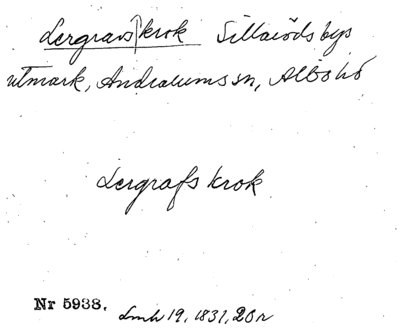 Lergravs krok Sillaröds bys
utmark, Andrarums sn, Albo hd
Lergrafs krok
Nr 5938. Lmh 19, 1831, 20 r